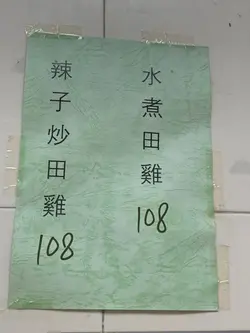 水煮田雞
108
辣子炒田雞
108